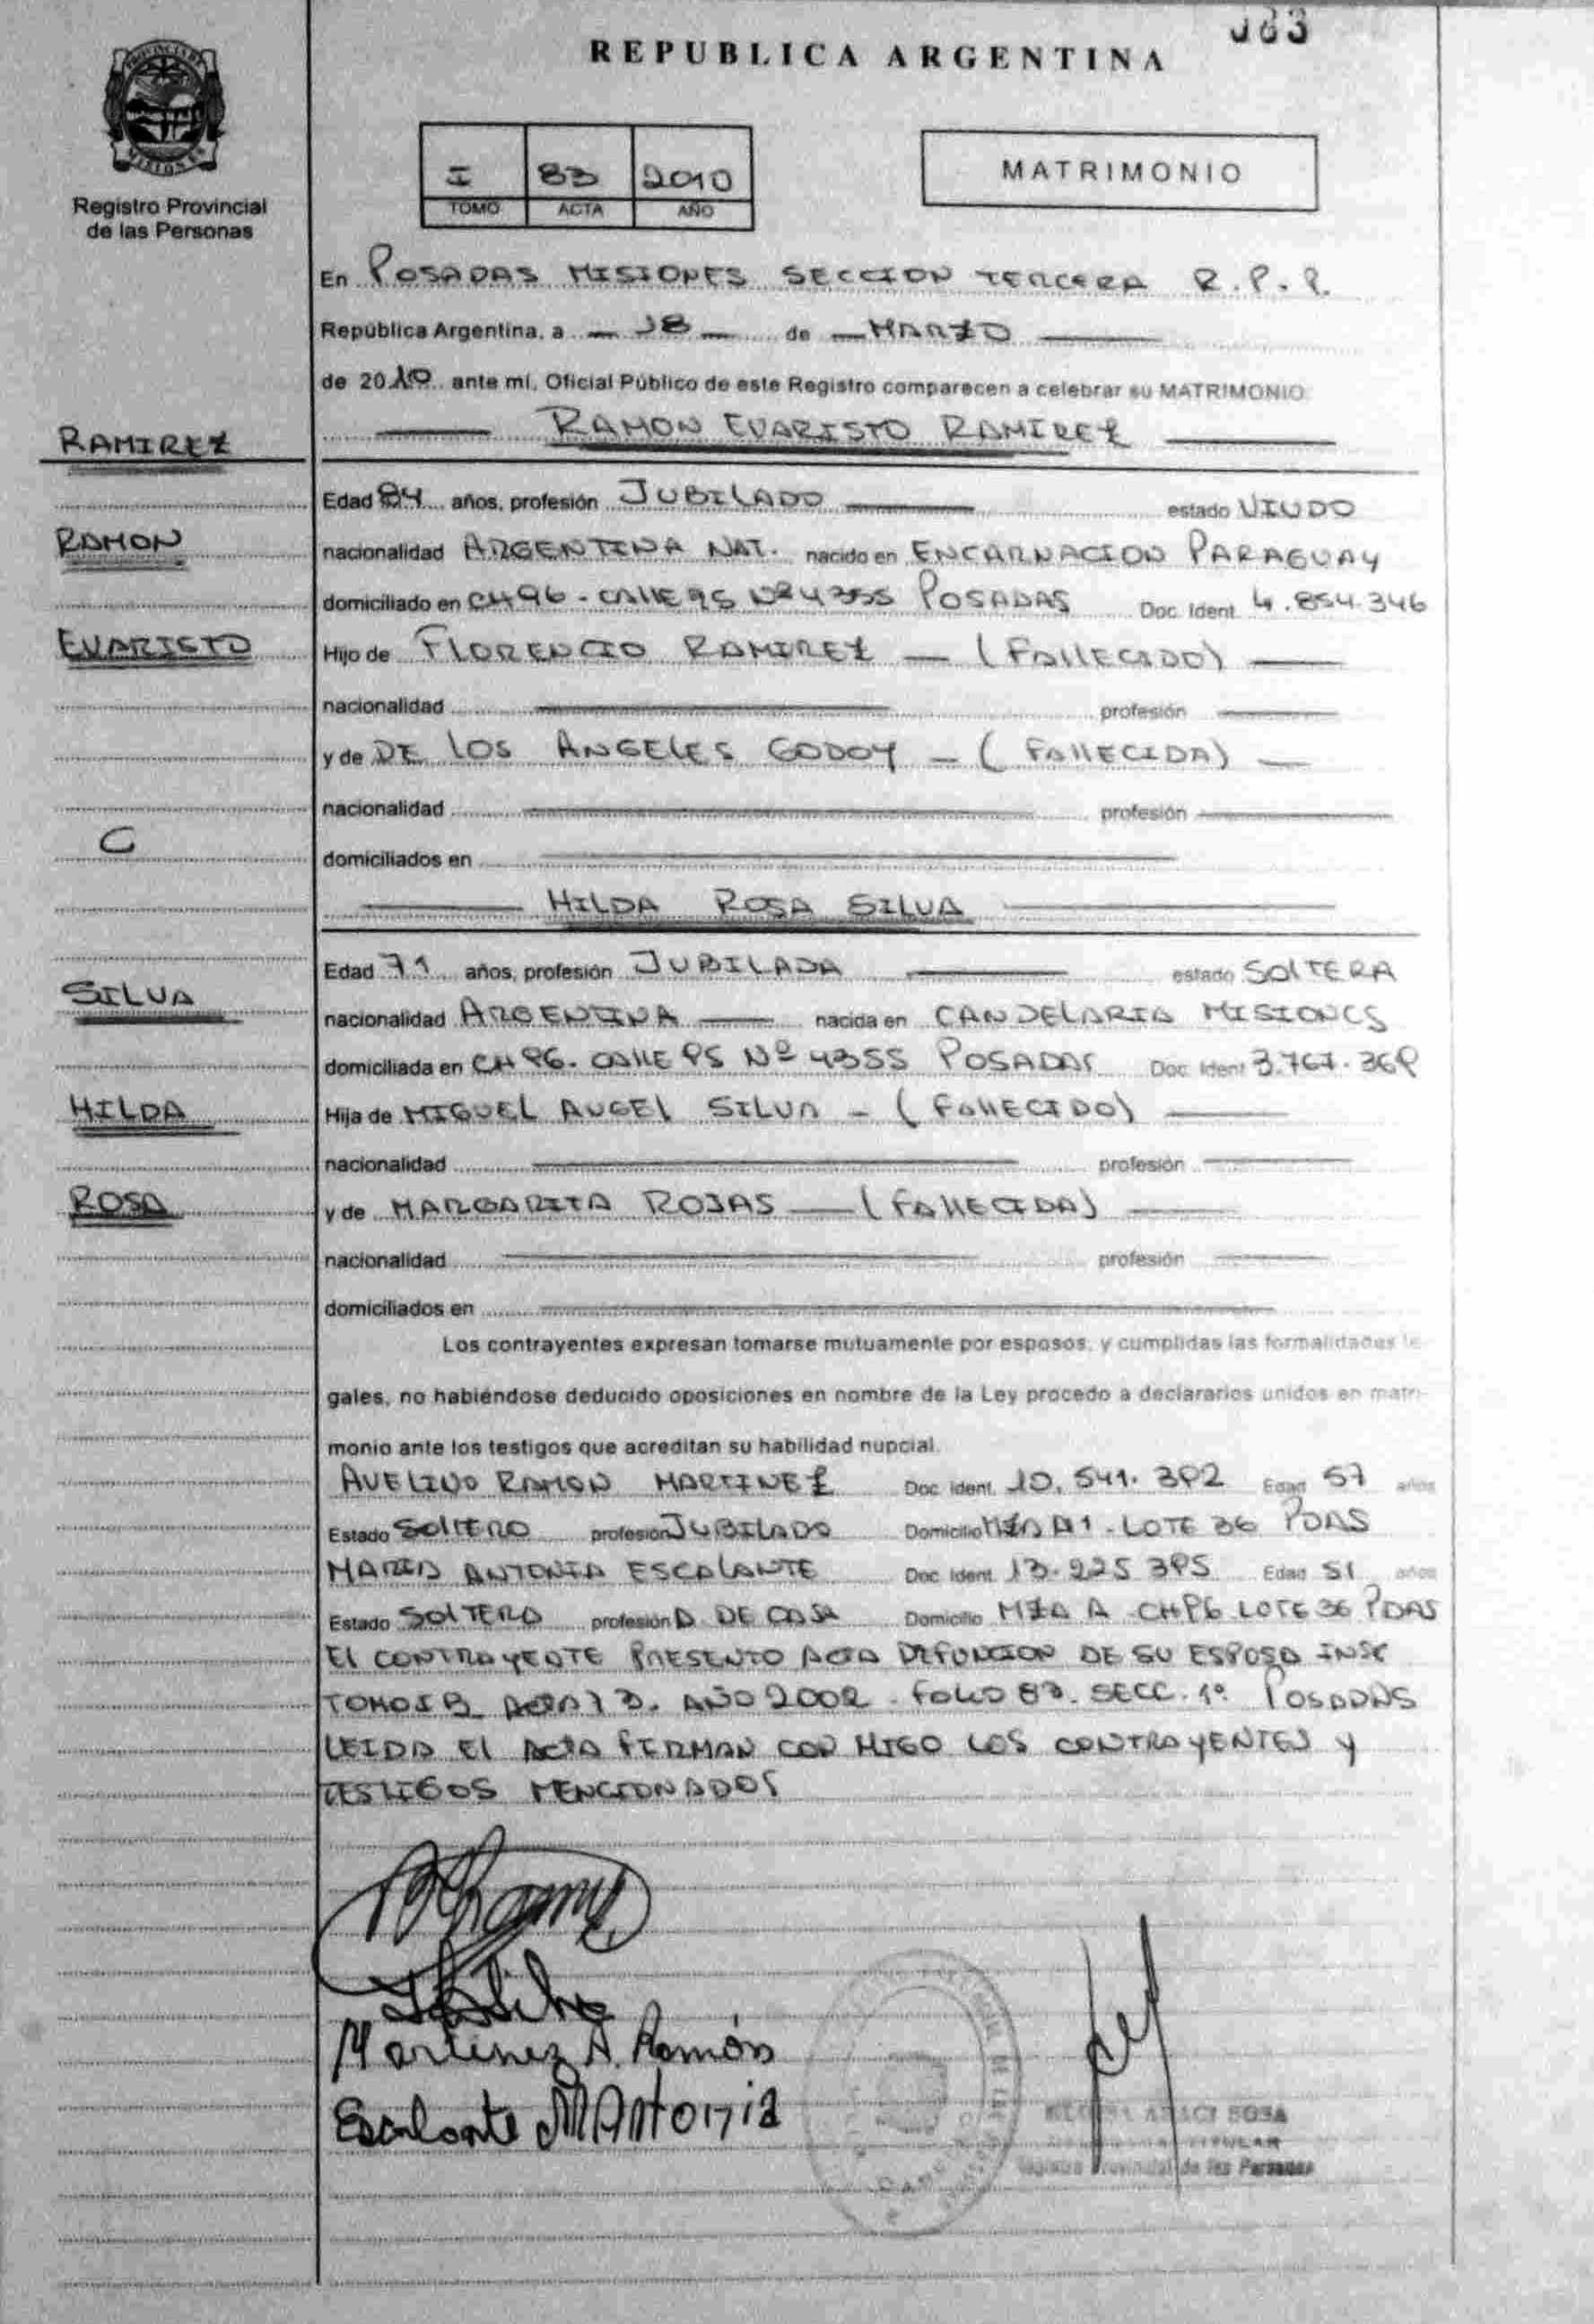 083
REPUBLICA ARGENTINA
PROVINCIA DE
MISIONES
Registro Provincial
de las Personas
I 83 2010
TOMO ACTA AÑO
MATRIMONIO
En POSADAS MISIONES SECCION TERCERA R.P.P.
República Argentina, a 18 de MARZO
de 2010 ante mí, Oficial Público de este Registro comparecen a celebrar su MATRIMONIO
RAMIREZ
RAMON EVARISTO RAMIREZ
Edad 84 años, profesión JUBILADO estado VIUDO
RAMON
nacionalidad ARGENTINA NAT. nacido en ENCARNACION PARAGUAY
domiciliado en CH 96 - CALLE 95 Nº 4355 POSADAS Doc. Ident. 4.854.346
EVARISTO
Hijo de FLORENCIO RAMIREZ — (FALLECIDO)
nacionalidad profesión
y de DE LOS ANGELES GODOY — (FALLECIDA)
nacionalidad profesión
C
domiciliados en
HILDA ROSA SILVA
Edad 71 años, profesión JUBILADA estado SOLTERA
SILVA
nacionalidad ARGENTINA nacida en CANDELARIA MISIONES
domiciliada en CH 96. CALLE 95 Nº 4355 POSADAS Doc. Ident. 3.767.369
HILDA
Hija de MIGUEL ANGEL SILVA — (FALLECIDO)
nacionalidad profesión
ROSA
y de MARGARITA ROJAS — (FALLECIDA)
nacionalidad profesión
domiciliados en
Los contrayentes expresan tomarse mutuamente por esposos, y cumplidas las formalidades le-
gales, no habiéndose deducido oposiciones en nombre de la Ley procedo a declararlos unidos en matri-
monio ante los testigos que acreditan su habilidad nupcial.
AVELINO RAMON MARTINEZ Doc. Ident. 10.541.392 Edad 57 años
Estado SOLTERO profesión JUBILADO Domicilio MZA A1 - LOTE 36 PDAS
MARIA ANTONIA ESCALANTE Doc. Ident. 13.225.395 Edad 51 años
Estado SOLTERA profesión A. DE CASA Domicilio MZA A CH96 LOTE 36 PDAS
El CONTRAYENTE PRESENTO ACTA DEFUNCION DE SU ESPOSA INSC
TOMO I B ACTA 13. AÑO 2002 . FOLIO 83. SECC. 1º POSADAS
LEIDA El ACTA FIRMAN CON MIGO LOS CONTRAYENTES y
TESTIGOS MENCIONADOS
Martinez A. Ramón
Escalante M Antonia
SOSA
TITULAR
Registro Provincial de las Personas